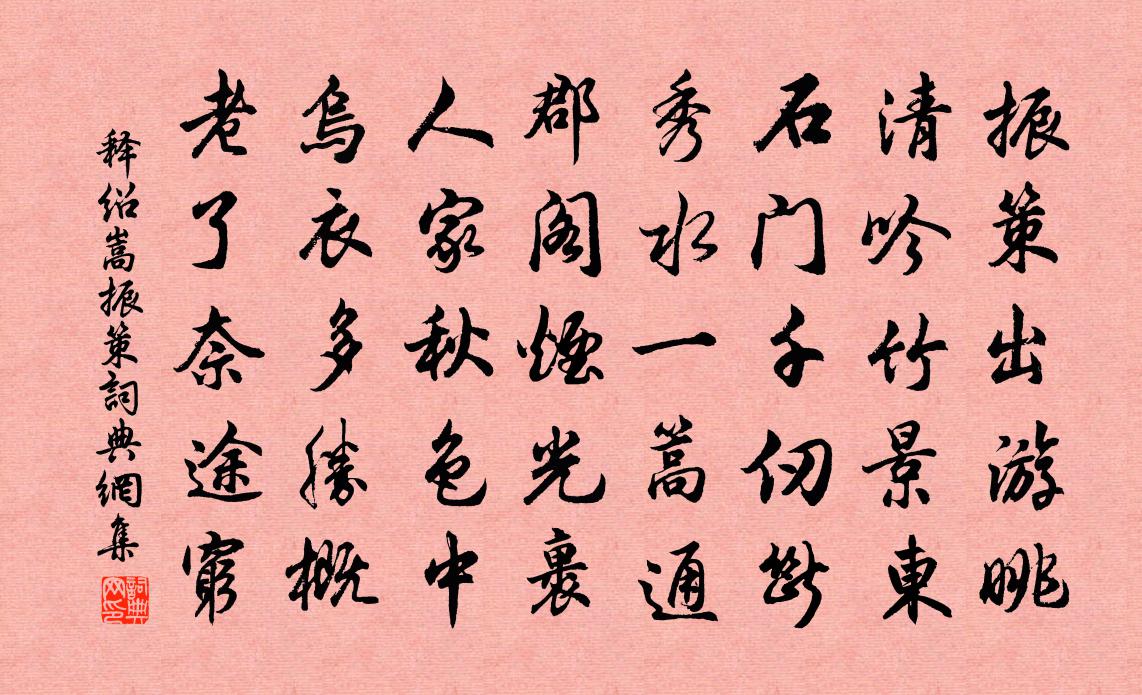 振策出游眺
清吟竹景東
石门千仞断
秀水一篙通
郡阁煙光裹
人家秋色中
烏衣多勝概
老了奈途窮
释绍嵩振策詞典網集
詞典网印